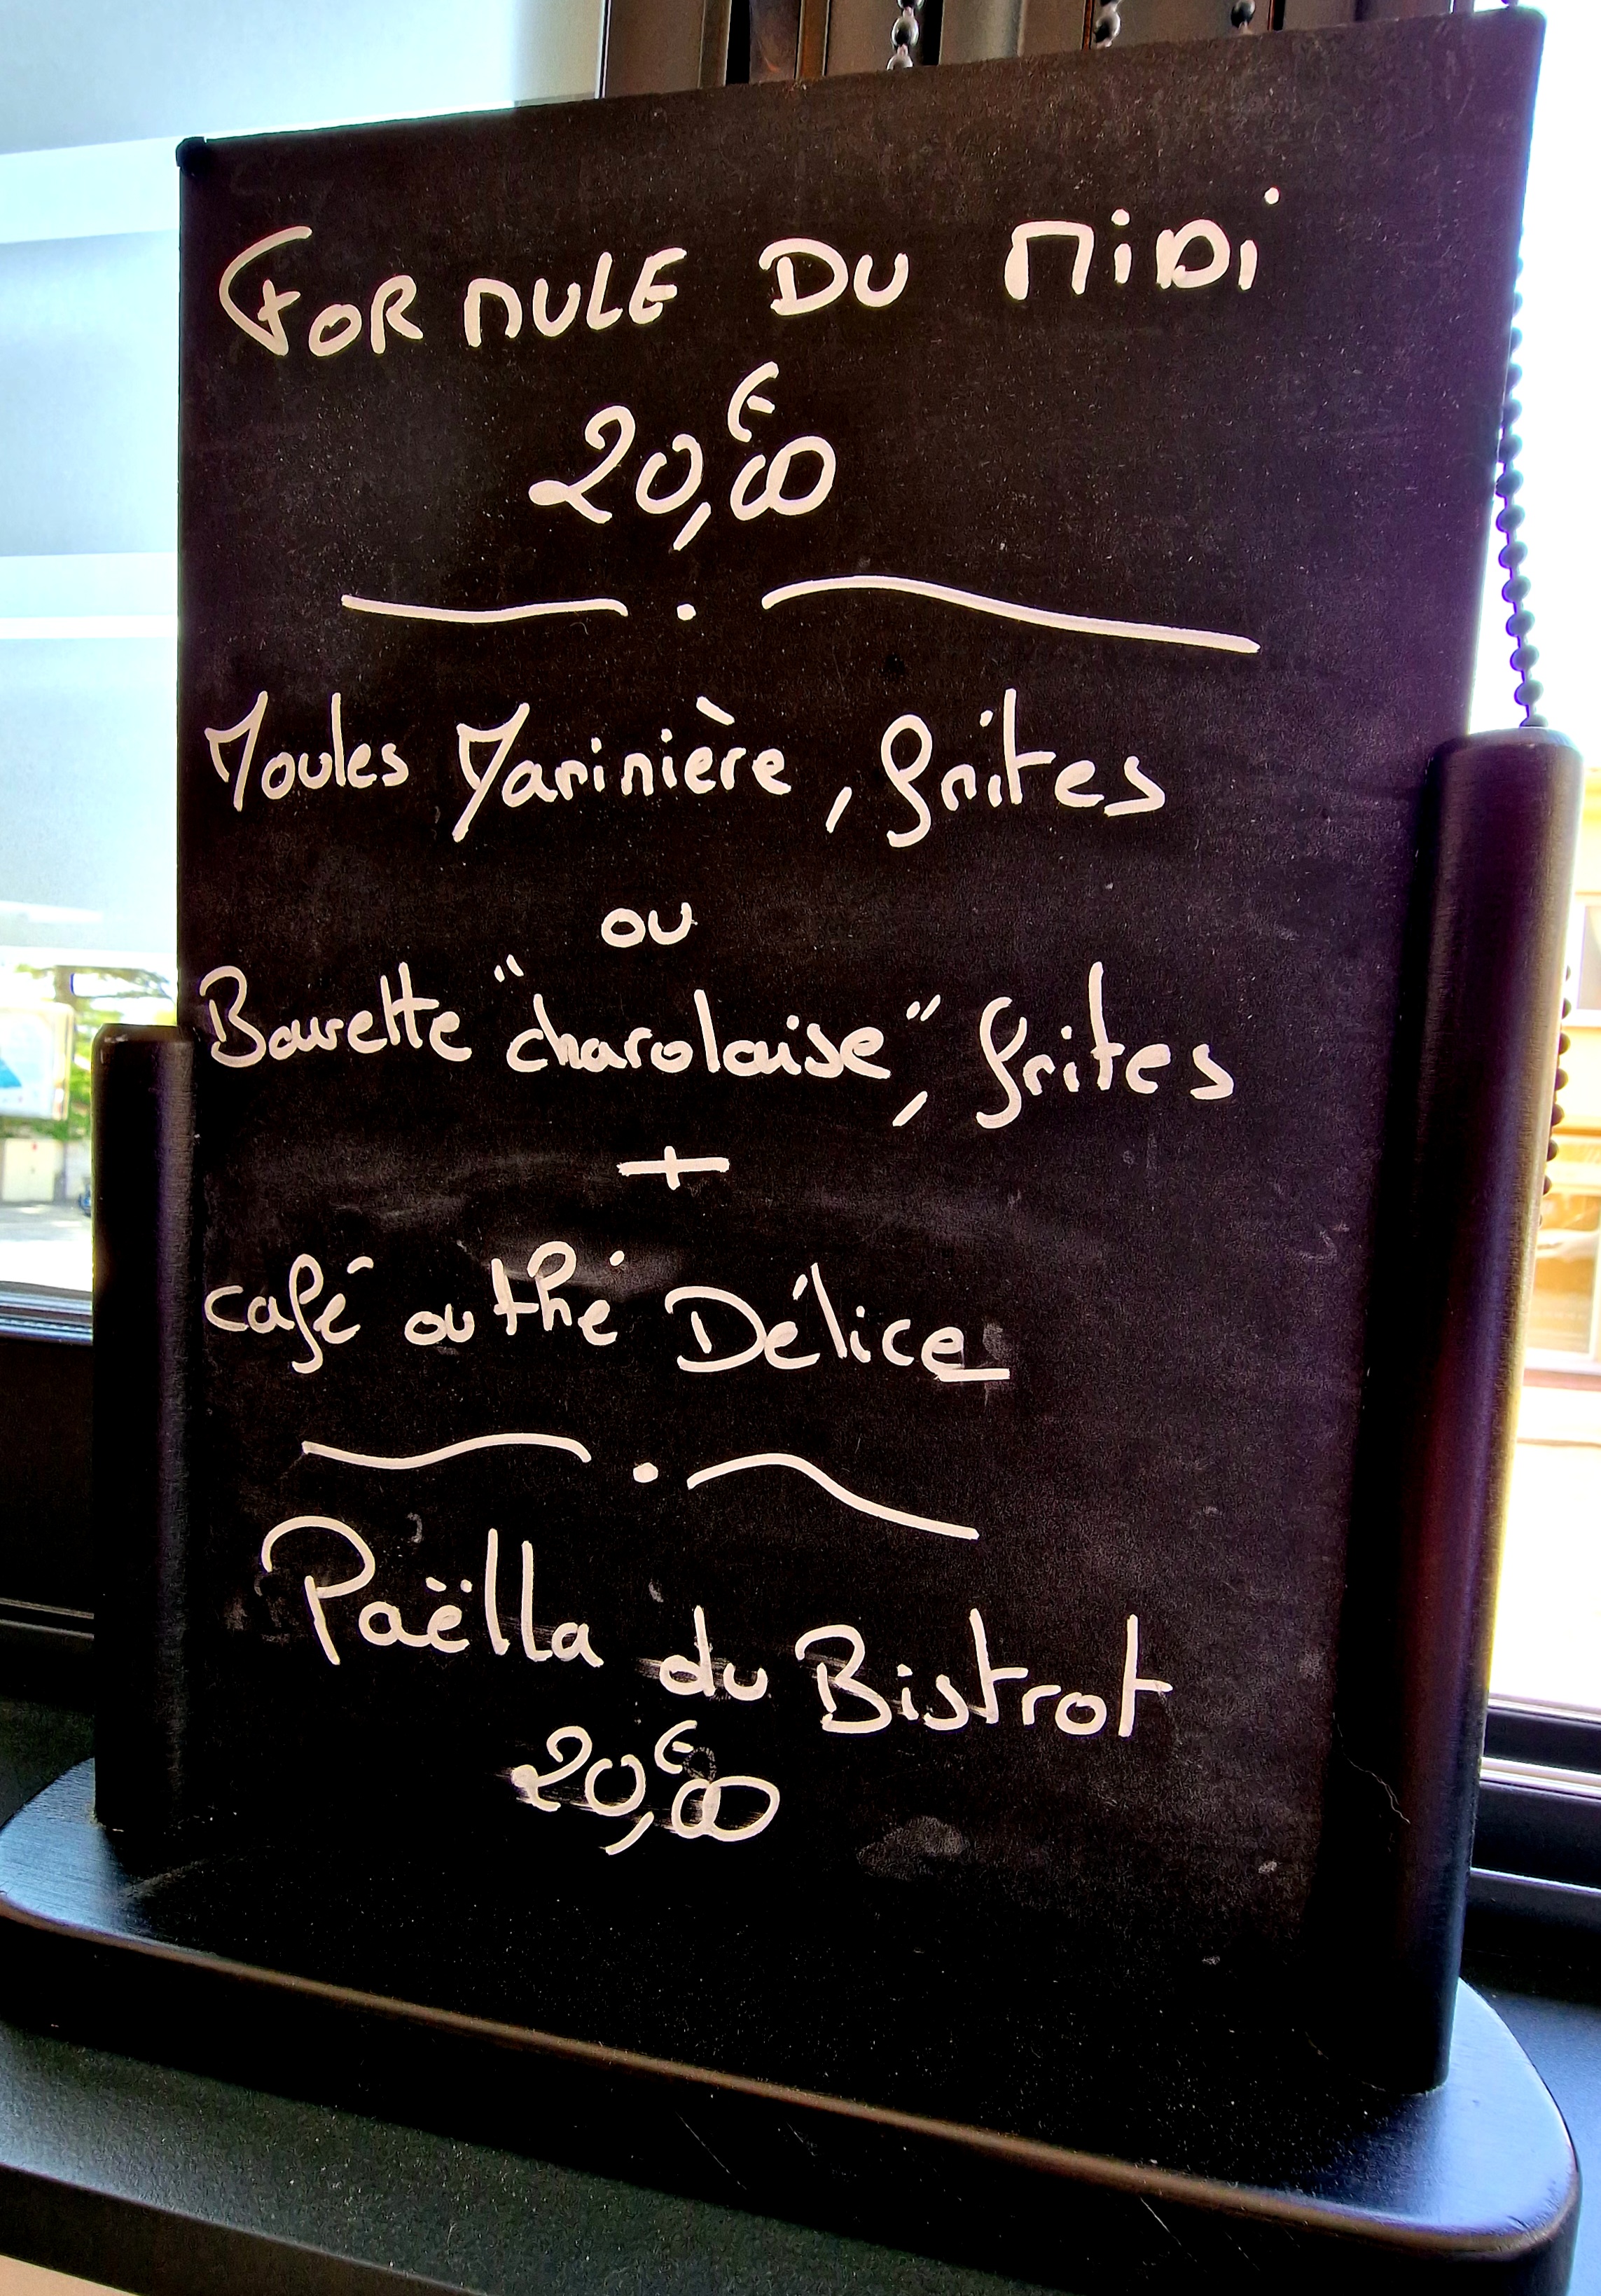 FORMULE DU MiDi
20,€00
Moules Marinière, frites
ou
Bavette "charolaise", frites
+
café ou thé Délice
Paëlla du Bistrot
20,€00